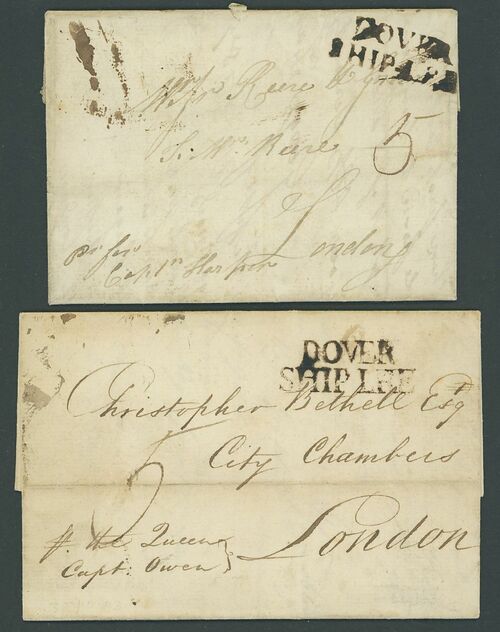 DOVER
SHIP LE
Reere &
5
Reere
London
Captn Harper
DOVER
SHIP LEE
Christopher Bethell Esqr
City Chambers
London
pr. the Queen
Capt. Owen